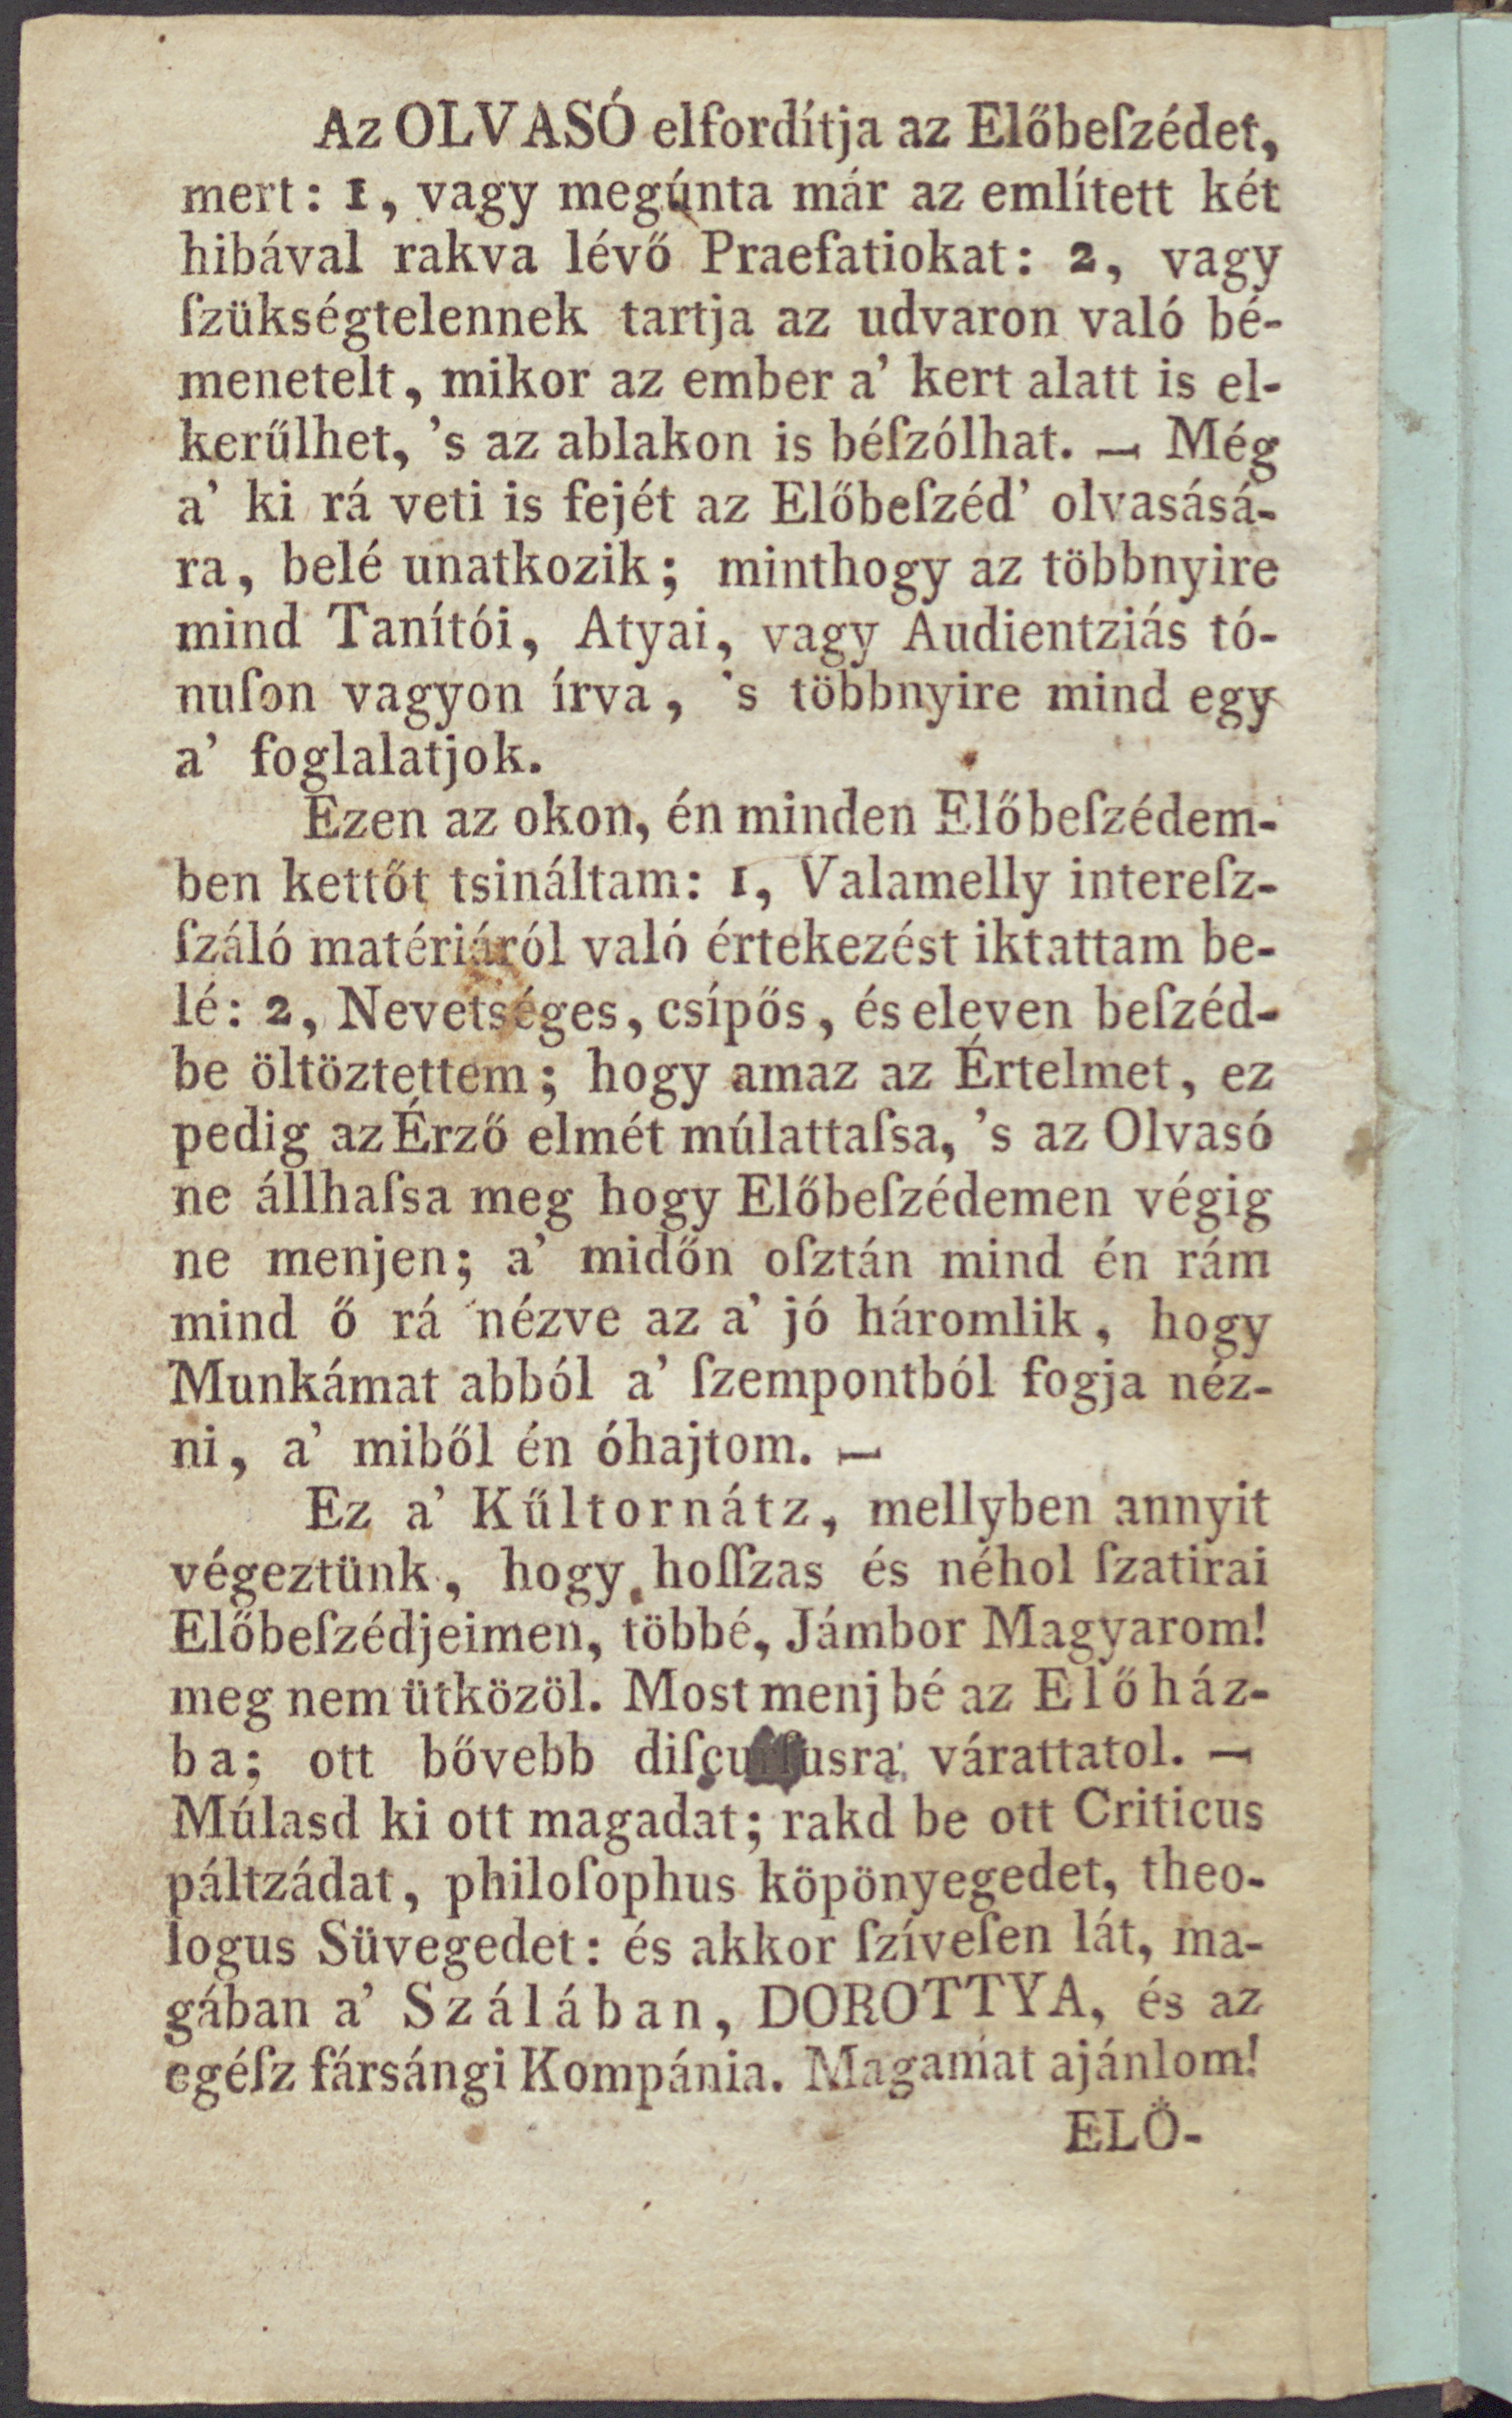 Az OLVASÓ elfordítja az Előbeſzédet,
mert: 1, vagy megúnta már az említett két
hibával rakva lévő Praefatiokat: 2, vagy
ſzükségtelennek tartja az udvaron való bé-
menetelt, mikor az ember a' kert alatt is el-
kerűlhet, 's az ablakon is béſzólhat. — Még
a' ki rá veti is fejét az Előbeſzéd' olvasásá-
ra, belé unatkozik; minthogy az többnyire
mind Tanítói, Atyai, vagy Audientziás tó-
nuſon vagyon írva, 's többnyire mind egy
a' foglalatjok.
Ezen az okon, én minden Előbeſzédem-
ben kettőt tsináltam: 1, Valamelly intereſz-
ſzáló matériáról való értekezést iktattam be-
lé: 2, Nevetséges, csípős, és eleven beſzéd-
be öltöztettem; hogy amaz az Értelmet, ez
pedig az Érző elmét múlattaſsa, 's az Olvasó
ne állhaſsa meg hogy Előbeſzédemen végig
ne menjen; a' midőn oſztán mind én rám
mind ő rá nézve az a' jó háromlik, hogy
Munkámat abból a' ſzempontból fogja néz-
ni, a' miből én óhajtom. —
Ez a' Kűltornátz, mellyben annyit
végeztünk, hogy hoſſzas és néhol ſzatirai
Előbeſzédjeimen, többé, Jámbor Magyarom!
meg nem ütközöl. Most menj bé az Előház-
ba; ott bővebb várattatol. —
Múlasd ki ott magadat; rakd be ott Criticus
páltzádat, philoſophus köpönyegedet, theo-
logus Süvegedet: és akkor ſzíveſen lát, ma-
gában a' Szálában, DOROTTYA, és az
egéſz fársángi Kompánia. Magamat ajánlom!
ELŐ-